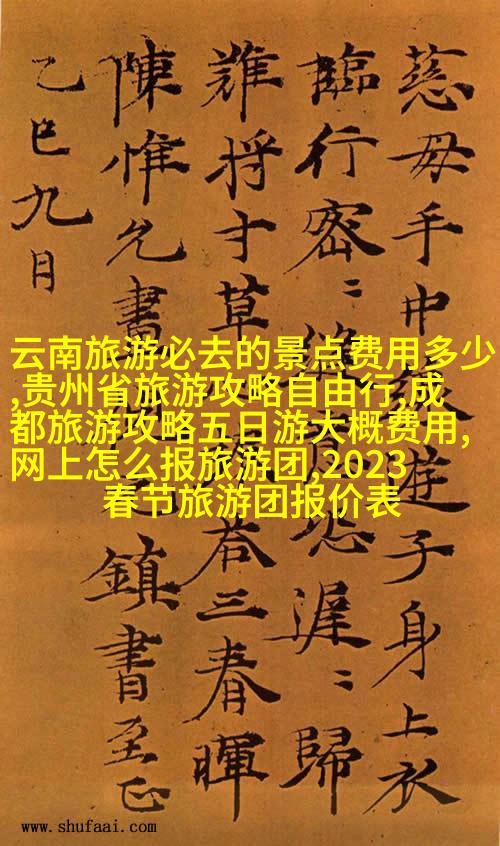 慈母手中線遊子身上衣
臨行密〻逢恐遲〻歸
難将寸草荅三春暉
陳惟允書鎮書至正
乙巳九月
云南旅游必去的景点费用多少
,贵州省旅游攻略自由行,成
都旅游攻略五日游大概费用,
网上怎么报旅游团,2023
春节旅游团报价表
www.shufaai.com